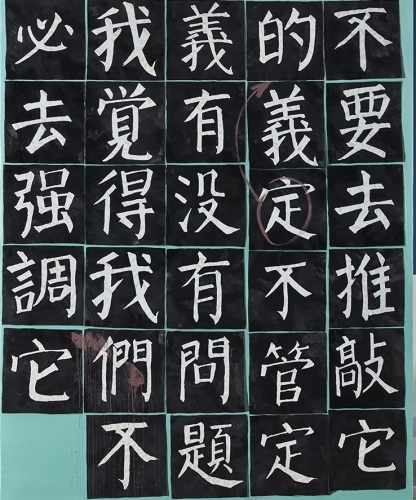 不要去推敲它
的義定不管定
義有没有問題
我覚得我們不
必去强調它